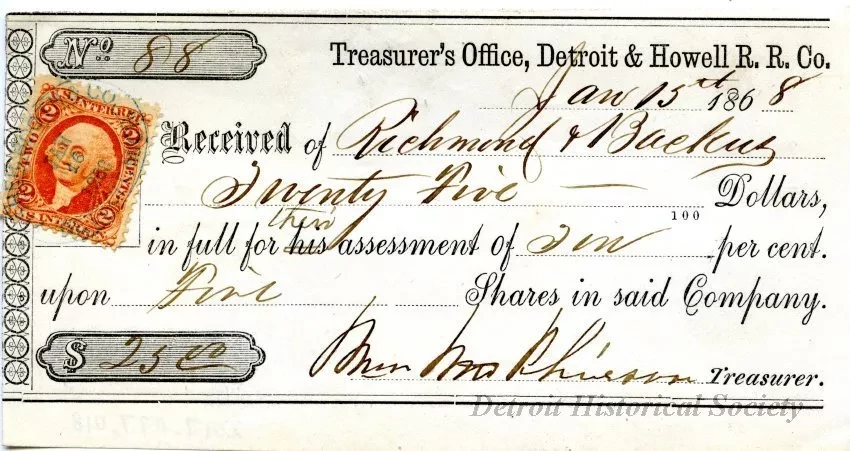 No. 88
Treasurer's Office, Detroit & Howell R. R. Co.
Jan 15th 1868
Received of Richmond & Backus
Twenty Five — Dollars,
100
their
in full for his assessment of Ten per cent.
upon Five Shares in said Company.
$ 25 00
Treasurer.
Detroit Historical Society
U.S. INTER. REVENUE
2 2
2 2